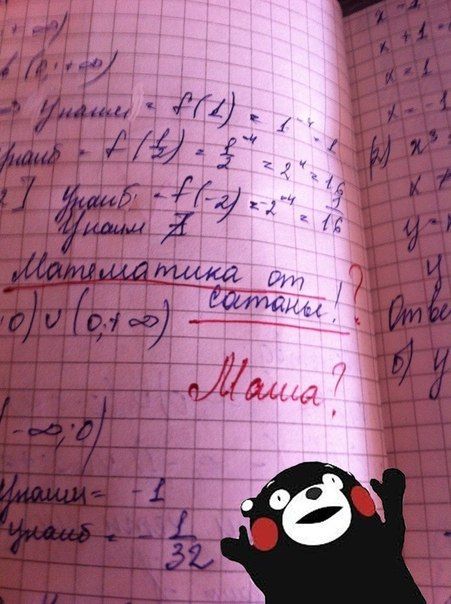 ; +∞)
(0; +∞)
Yнаим = f(1) = 1⁻⁴ = 1
Yнаиб = f(1/2) = 1/2⁻⁴ = 2⁴ = 16
Yнаиб = f(-2) = 2⁻⁴ = 1/16
Yнаим ∄
Математика от
сатаны! ?
;0) ∪ (0; +∞)
Маша?
-∞; 0)
Yнаим = -1
Yнаиб = - 1/32
x - 1
x + 1
x = 1
x = -1
x³
x
y =
y
Отве
б) y